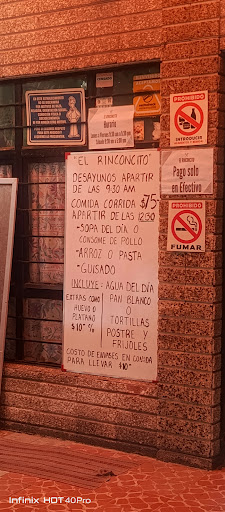 PROHIBIDO
INTRODUCIR
Horario
Pago solo
en Efectivo
PROHIBIDO
FUMAR
"EL RINCONCITO"
DESAYUNOS APARTIR
DE LAS 9:30 AM
COMIDA CORRIDA $75
APARTIR DE LAS 12:30
-SOPA DEL DÍA O
CONSOME DE POLLO
-ARROZ O PASTA
-GUISADO
INCLUYE: AGUA DEL DÍA
EXTRAS COMO
HUEVO O
PLATANO
$10 00/100
PAN BLANCO
O
TORTILLAS
POSTRE Y
FRIJOLES
COSTO DE ENVASES EN COMIDA
PARA LLEVAR $10
Infinix HOT 40 Pro